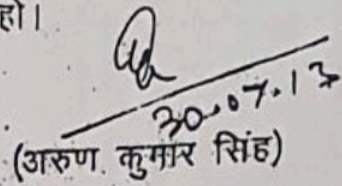 हो।
30.07.13
(अरुण कुमार सिंह)